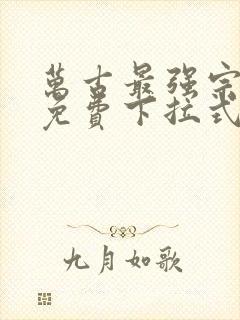 萬古最强宗
免費下拉式
九月如歌